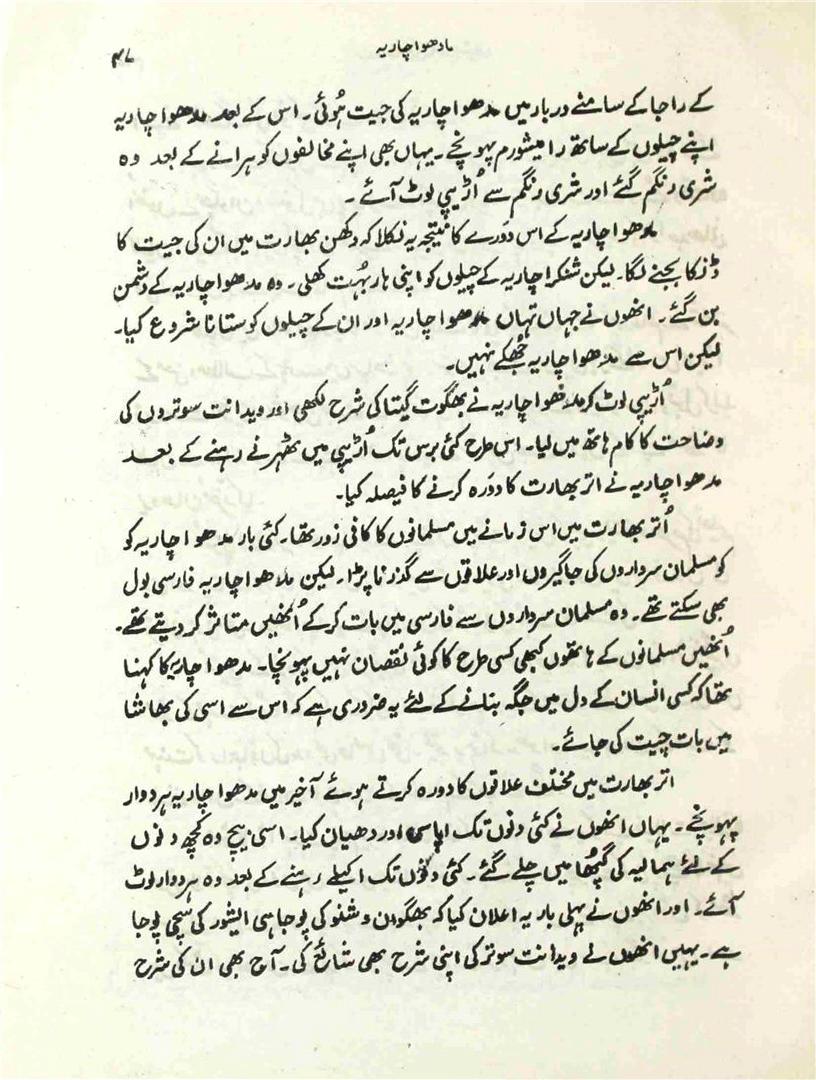 مادھواچاریہ
۴۷
کے راجا کے سامنے دربار میں مدھواچاریہ کی جیت ہُوئی۔ اس کے بعد مدھواچاریہ
اپنے چیلوں کے ساتھ رامیشورم پہونچے۔ یہاں بھی اپنے مخالفوں کو ہرانے کے بعد وہ
شری رنگم گئے اور شری رنگم سے اُڑیپی لوٹ آئے۔
مدھواچاریہ کے اس دَورے کا نتیجہ یہ نکلا کہ دکھن بھارت میں ان کی جیت کا
ڈنکا بجنے لگا۔ لیکن شنکراچاریہ کے چیلوں کو اپنی ہار بہُت کھلی۔ وہ مدھواچاریہ کے دشمن
بن گئے۔ انھوں نے جہاں تہاں مدھواچاریہ اور ان کے چیلوں کو ستانا شروع کیا۔
لیکن اس سے مدھواچاریہ جُھکے نہیں۔
اُڑیپی لوٹ کر مدھواچاریہ نے بھگوت گیتا کی شرح لکھی اور ویدانت سوتروں کی
وضاحت کا کام ہاتھ میں لیا۔ اس طرح کئی برس تک اُڑیپی میں ٹھہرنے رہنے کے بعد
مدھواچاریہ نے اتر بھارت کا دَورہ کرنے کا فیصلہ کیا۔
اُتر بھارت میں اس زمانے میں مسلمانوں کا کافی زور تھا۔ کئی بار مدھواچاریہ کو
کو مسلمان سرداروں کی جاگیروں اور علاقوں سے گذرنا پڑا۔ لیکن مدھواچاریہ فارسی بول
بھی سکتے تھے۔ وہ مسلمان سرداروں سے فارسی میں بات کرکے اُنھیں متاثر کر دیتے تھے۔
اُنھیں مسلمانوں کے ہاتھوں کبھی کسی طرح کا کوئی نقصان نہیں پہونچا۔ مدھواچاریہ کا کہنا
تھا کہ کسی انسان کے دل میں جگہ بنانے کے لئے یہ ضروری ہے کہ اس سے اسی کی بھاشا
میں بات چیت کی جائے۔
اتر بھارت میں مختلف علاقوں کا دورہ کرتے ہوئے آخیر میں مدھواچاریہ ہردوار
پہونچے۔ یہاں انھوں نے کئی دنوں تک اپاسی اور دھیان کیا۔ اسی بیچ وہ کچھ دنوں
کے لئے ہمالیہ کی گپُھا میں چلے گئے۔ کئی دنوں تک اکیلے رہنے کے بعد وہ ہردوار لوٹ
آئے۔ اور انھوں نے پہلی بار یہ اعلان کیا کہ بھگوان وشنو کی پوجا ہی ایشور کی سچی پوجا
ہے۔ یہیں انھوں نے ویدانت سوتر کی اپنی شرح بھی شائع کی۔ آج بھی ان کی شرح